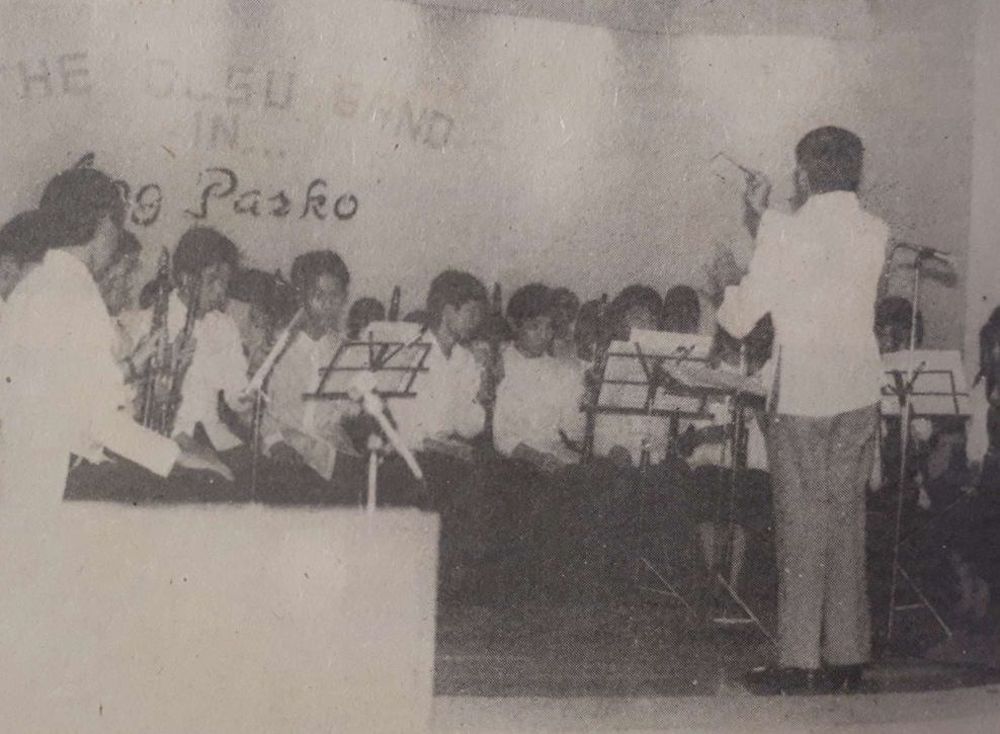 THE OLSU BAND
IN...
Pasko